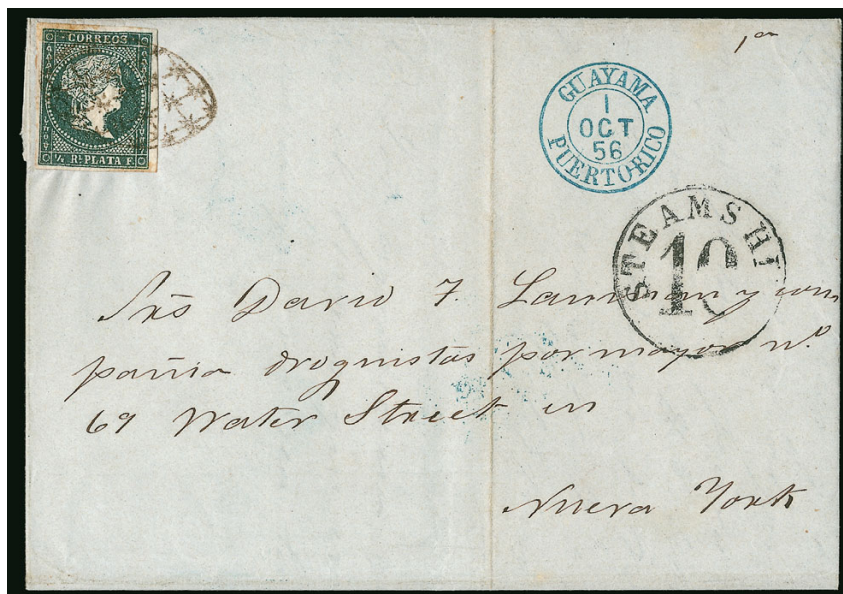 CORREOS
½ Rl. PLATA F.
1on
GUAYAMA
1
OCT
56
PUERTO-RICO
STEAMSHI
10
Srs David F. Lanman y com
pañia droguistas por mayor nº
69 Water Street en
Nueva York